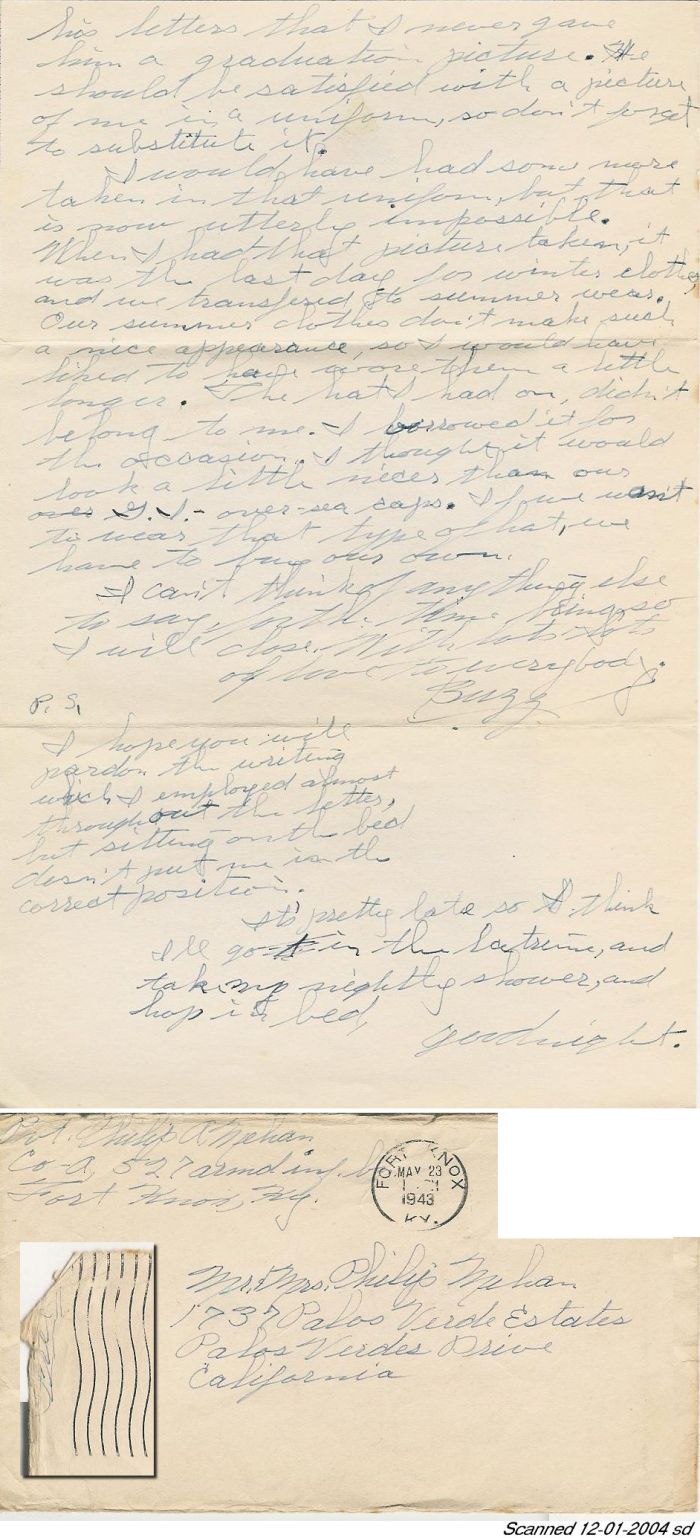 his letters that I never gave
him a graduation picture. He
should be satisfied with a picture
of me in a uniform, so don't forget
to substitute it.
I would have had some more
taken in that uniform, but that
is now utterly impossible.
When I had that picture taken, it
was the last day for winter clothes
and we transfered to summer wear.
Our summer clothes don't make such
a nice appearance, so I would have
liked to have wore them a little
longer. The hat I had on, didn't
belong to me. I borrowed it for
the occasion. I thought it would
look a little nicer than our
over G.I. - over-sea caps. If we want
to wear that type of hat, we
have to buy our own.
I can't think of anything else
to say, for the time being, so
I will close. With lots & lots
of love to everybody.
Buzz
P.S.
I hope you will
pardon the writing
which I employed almost
throughout the letter,
but sitting on the bed
doesn't put me in the
correct position.
It's pretty late so I think
I'll go in the latrine, and
take my nightly shower, and
hop in bed,
goodnight.
Pvt. Philip A Nehan
Co-A, 527 armd inf. b
Fort Knox, Ky.
FORT KNOX
MAY 23
1943
KY.
Mr. & Mrs. Philip Nehan
1737 Palos Verde Estates
Palos Verdes Drive
California
Scanned 12-01-2004 sd